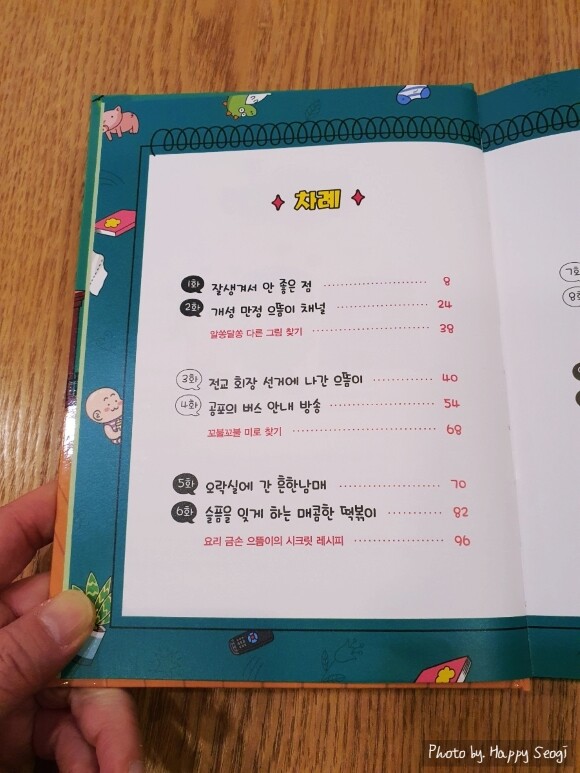 차례
1화 잘생겨서 안 좋은 점 8
2화 개성 만점 으뜸이 채널 24
알쏭달쏭 다른 그림 찾기 38
3화 전교 회장 선거에 나간 으뜸이 40
4화 공포의 버스 안내 방송 54
꼬불꼬불 미로 찾기 68
5화 오락실에 간 흔한남매 70
6화 슬픔을 잊게 하는 매콤한 떡볶이 82
요리 금손 으뜸이의 시크릿 레시피 96
7화
8화
Photo by. Happy Seogi